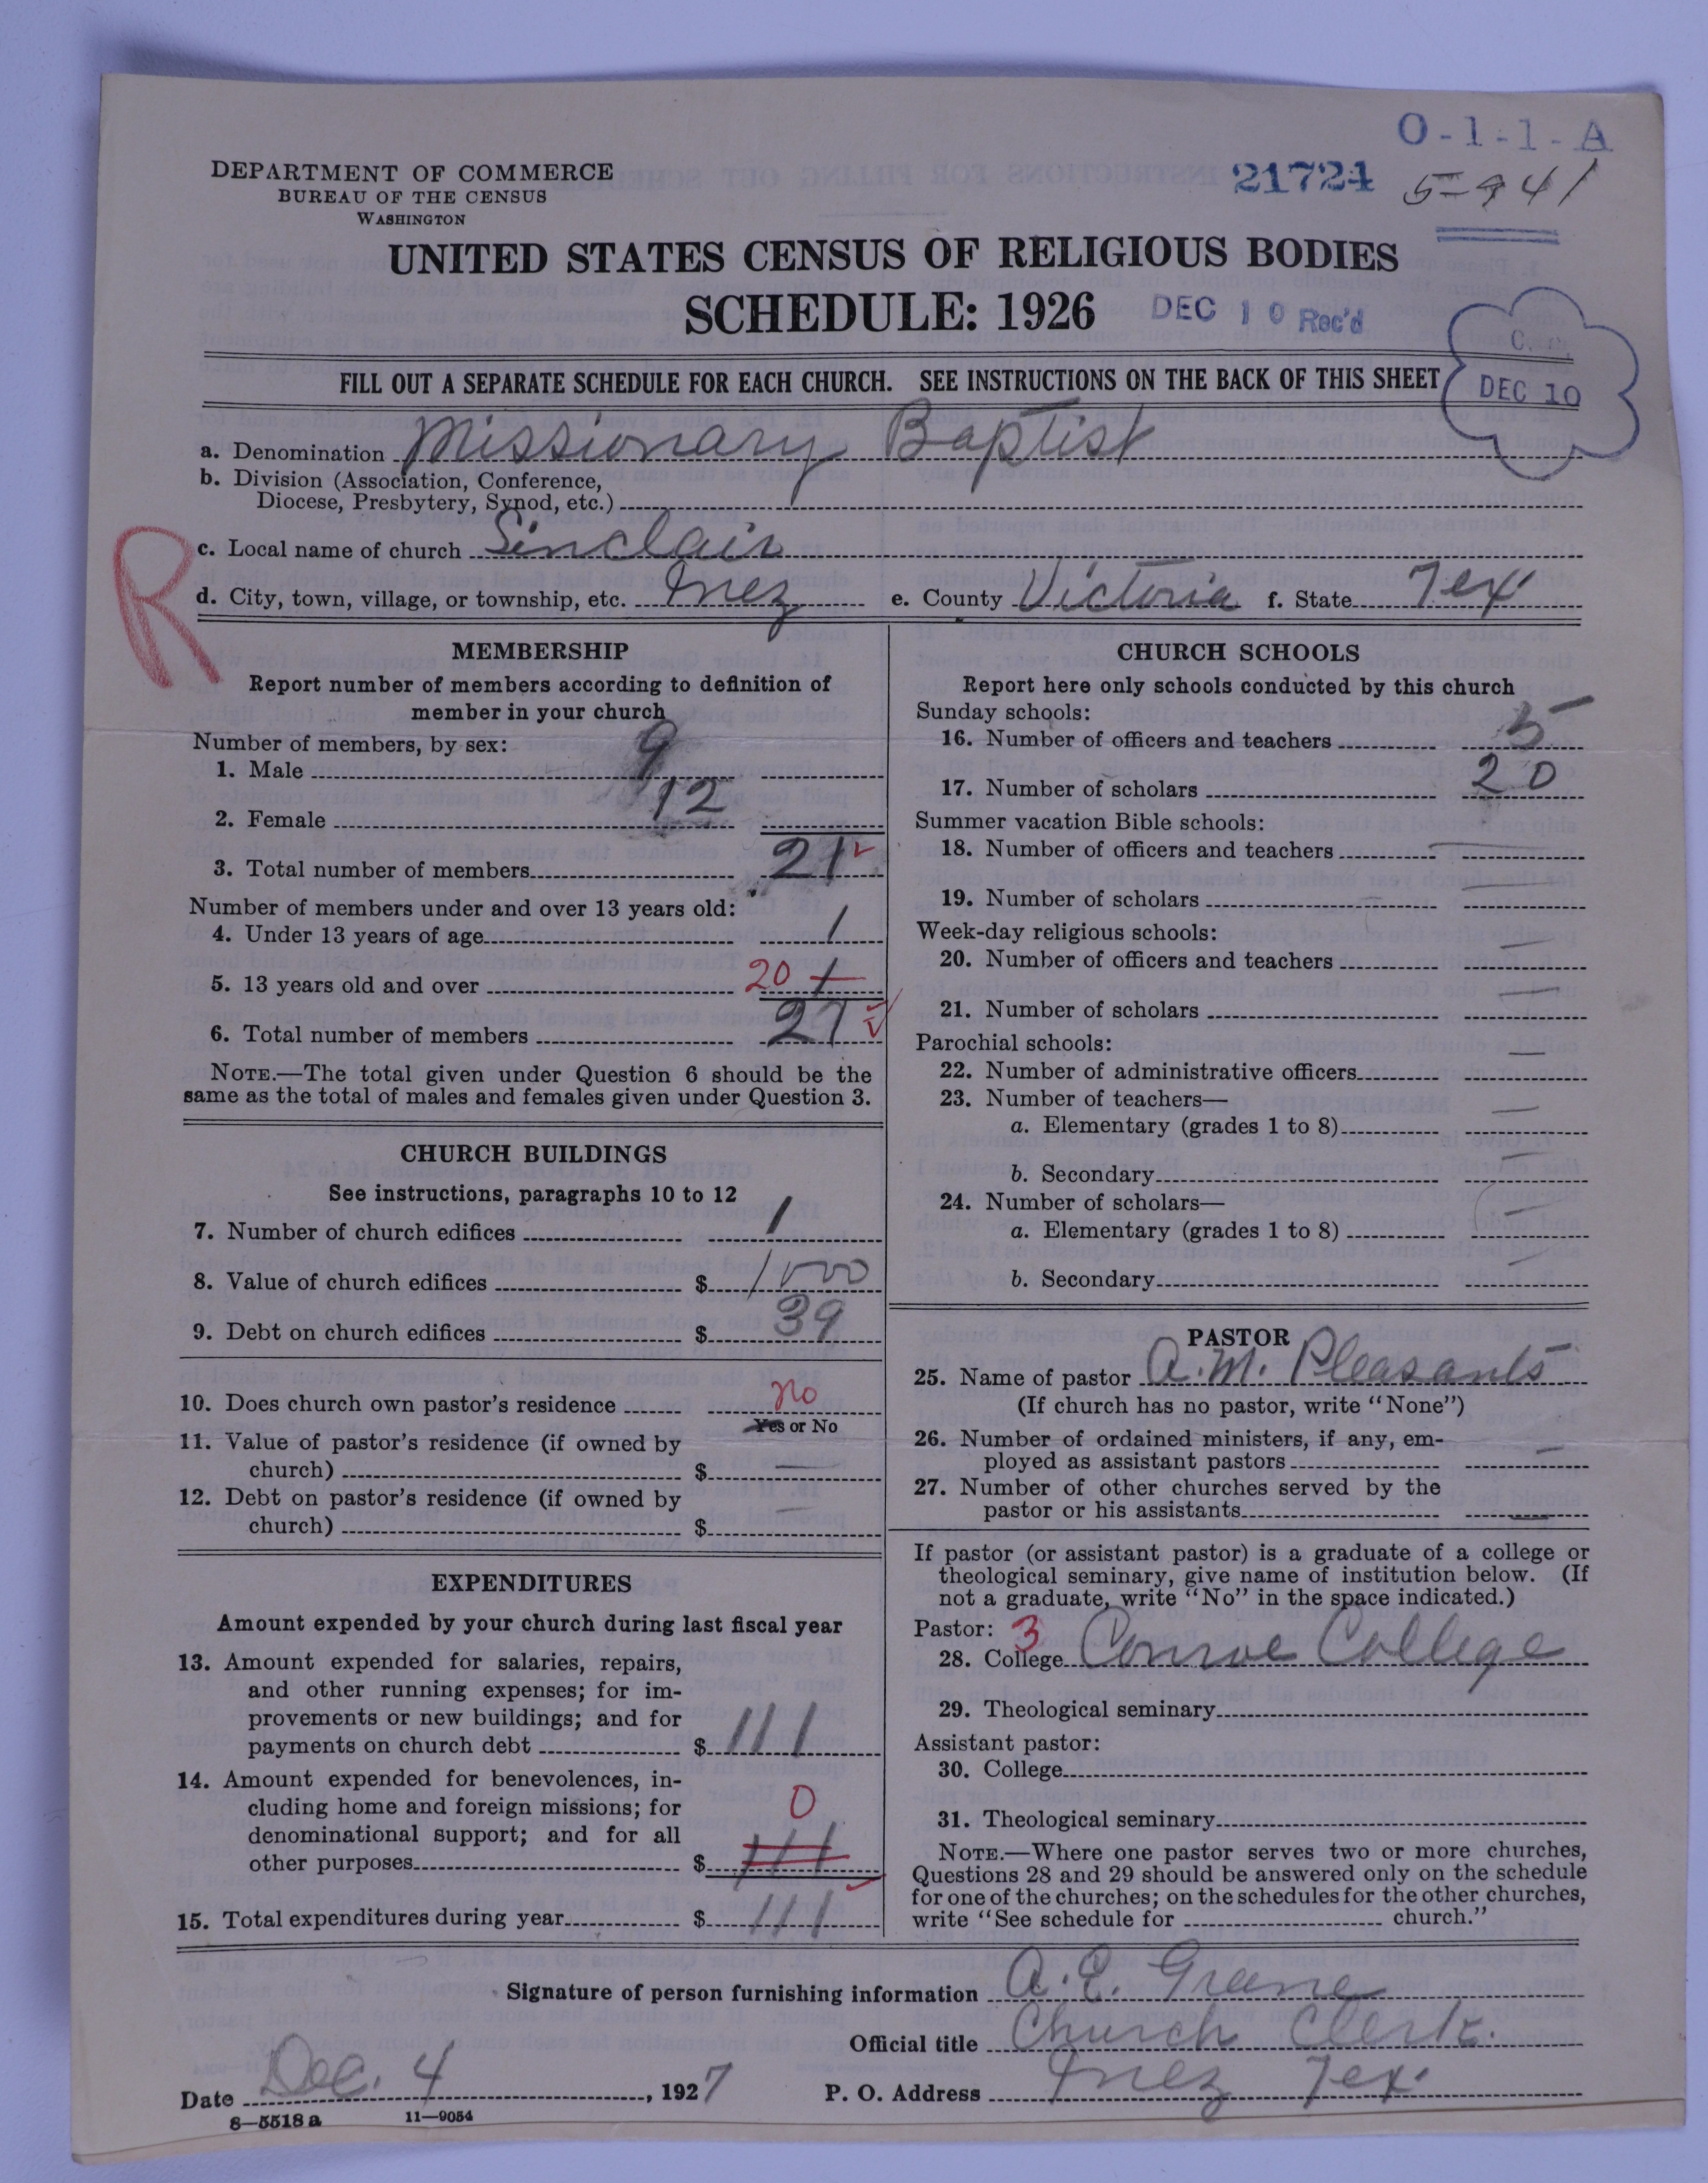 O-1-1-A
DEPARTMENT OF COMMERCE
BUREAU OF THE CENSUS
WASHINGTON
21724 5-941
UNITED STATES CENSUS OF RELIGIOUS BODIES
SCHEDULE: 1926 DEC 10 Rec'd
FILL OUT A SEPARATE SCHEDULE FOR EACH CHURCH. SEE INSTRUCTIONS ON THE BACK OF THIS SHEET
DEC 10
a. Denomination Missionary Baptist
b. Division (Association, Conference,
Diocese, Presbytery, Synod, etc.)
R
c. Local name of church Sinclair
d. City, town, village, or township, etc. Inez e. County Victoria f. State Tex
MEMBERSHIP
Report number of members according to definition of
member in your church
Number of members, by sex:
1. Male 9
2. Female 12
3. Total number of members 21
Number of members under and over 13 years old:
4. Under 13 years of age 1
5. 13 years old and over 20 1
6. Total number of members 21
NOTE.—The total given under Question 6 should be the
same as the total of males and females given under Question 3.
CHURCH BUILDINGS
See instructions, paragraphs 10 to 12
7. Number of church edifices 1
8. Value of church edifices $ 1000
9. Debt on church edifices $ 39
10. Does church own pastor's residence no
Yes or No
11. Value of pastor's residence (if owned by
church) $ —
12. Debt on pastor's residence (if owned by
church) $ —
EXPENDITURES
Amount expended by your church during last fiscal year
13. Amount expended for salaries, repairs,
and other running expenses; for im-
provements or new buildings; and for
payments on church debt $ 111
14. Amount expended for benevolences, in-
cluding home and foreign missions; for
denominational support; and for all
other purposes $ 0 111
15. Total expenditures during year $ 111
CHURCH SCHOOLS
Report here only schools conducted by this church
Sunday schools:
16. Number of officers and teachers 5
17. Number of scholars 20
Summer vacation Bible schools:
18. Number of officers and teachers —
19. Number of scholars —
Week-day religious schools:
20. Number of officers and teachers —
21. Number of scholars —
Parochial schools:
22. Number of administrative officers —
23. Number of teachers—
a. Elementary (grades 1 to 8) —
b. Secondary —
24. Number of scholars—
a. Elementary (grades 1 to 8) —
b. Secondary —
PASTOR
25. Name of pastor A. M. Pleasants
(If church has no pastor, write "None")
26. Number of ordained ministers, if any, em-
ployed as assistant pastors —
27. Number of other churches served by the
pastor or his assistants —
If pastor (or assistant pastor) is a graduate of a college or
theological seminary, give name of institution below. (If
not a graduate, write "No" in the space indicated.)
Pastor: 3
28. College Conroe College
29. Theological seminary
Assistant pastor:
30. College
31. Theological seminary
NOTE.—Where one pastor serves two or more churches,
Questions 28 and 29 should be answered only on the schedule
for one of the churches; on the schedules for the other churches,
write "See schedule for church."
Signature of person furnishing information A. E. Greene
Official title Church Clerk.
Date Dec. 4, 1927 P. O. Address Inez Tex.
8—5518 a 11—9054